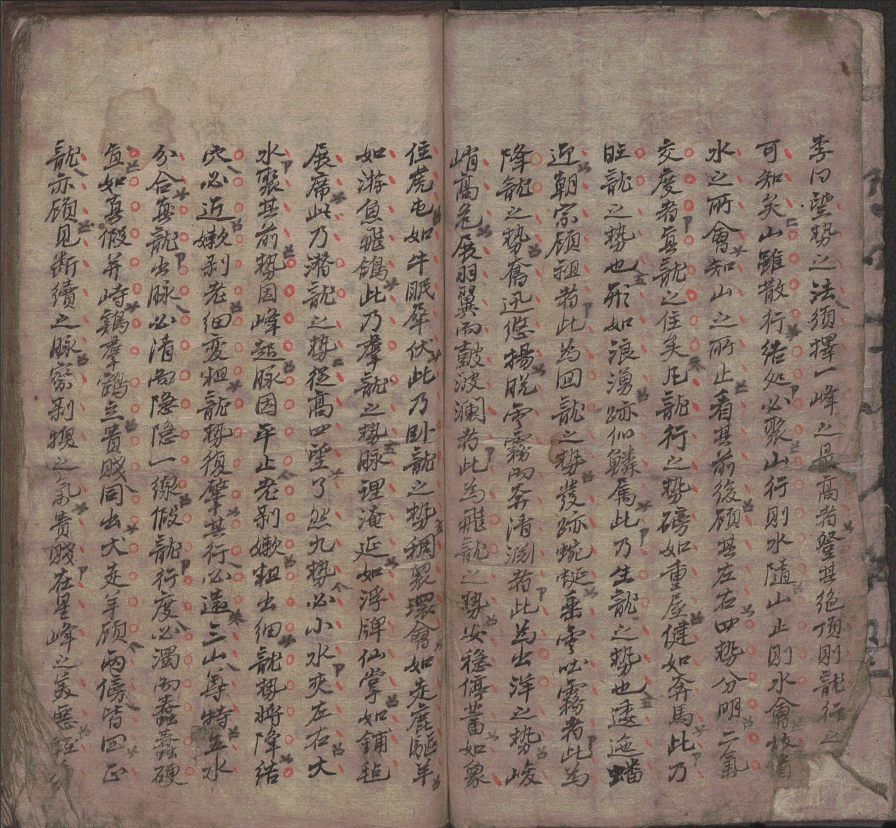 李曰望勢之法須擇一峰之最高者登其絶頂則龍行之
可知矣山雖散行結処必聚山行則水隨山止則水會故
水之所會知山之所止看其前後顧其左右四勢分明二氣
交度者真龍之住矣凡龍行之勢礡如重屋健如奔馬此乃
旺龍之勢也形如浪湧跡似鱗厲此乃生龍之勢也逶迤蟠
近朝宗顧祖者此為回龍之勢發跡蜿蜒乘雲吐霧者此為
降龍之勢奮迅悠揚脱雲霧而奔清淵者此為出洋之勢峻
峭高危展羽翼而鼓波瀾者此為飛龍之勢安穏停蓄如象
住虎屯如牛眠犀伏此乃卧龍之勢稠裂環會如走鹿驅羊
如游魚飛鴿此乃羣龍之勢脉理淹延如浮牌仙掌如鋪毡
展席此乃潜龍之勢從高四望了然九勢必小水夾左右大
水聚其前勢因峰起脉因平止老剥嫰粗出细龍勢將降結
穴必近嫰剥老细变粗龍勢復肇其行必遠三山尊特五水
分合真龍出脉必清而隐隐一線假龍行度必濁而蠢蠢硬
直如真假并峙鷄羣鶴立貴賤同出犬走羊顧兩傍皆回正
龍亦顧見断續之脉察剥換之氣貴賤在星峰之美惡